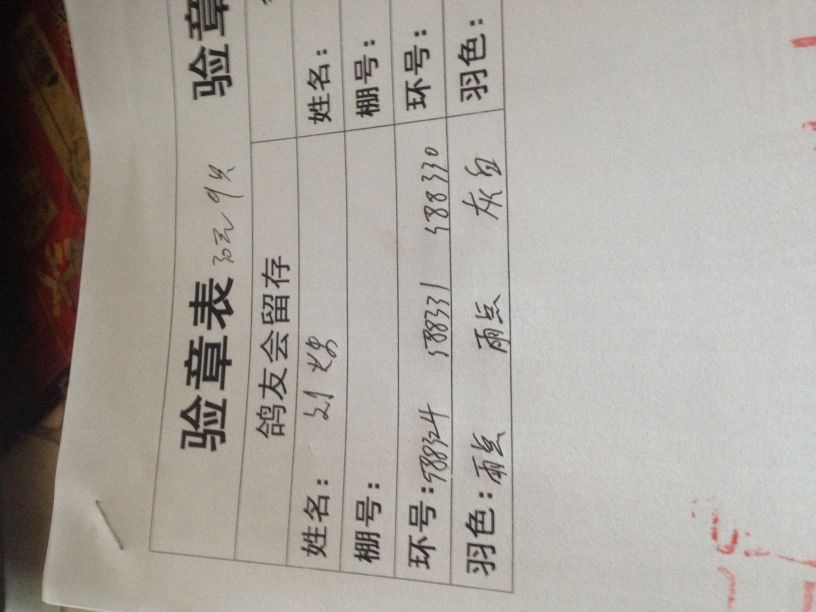 验章表 30元 验章
鸽友会留存
姓名：刘 姓名：
棚号： 棚号：
环号：588324 588331 588330 环号：
羽色：雨点 雨点 灰白 羽色：